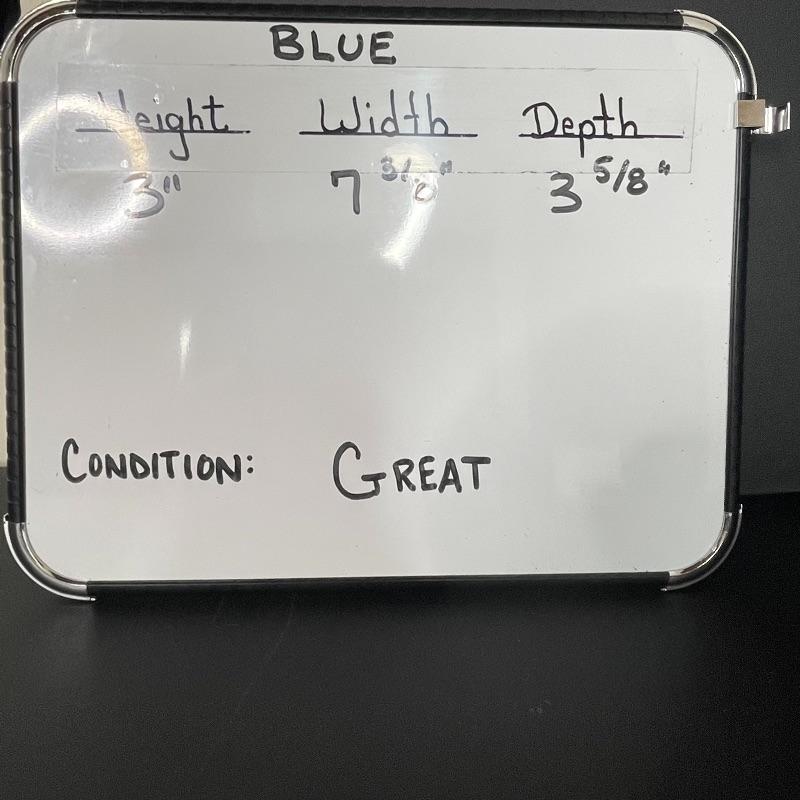 BLUE
Height Width Depth
3" 7 3/8" 3 5/8"
CONDITION: GREAT